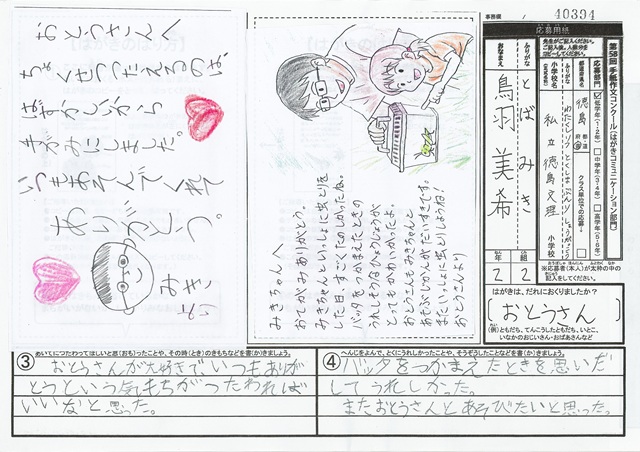 おとうさんへ
ちょくせつつたえるのは、
はずかしいから
手がみにしました。
いつもあそんでくれて
ありがとう。
みきより
みきちゃんへ
おてがみありがとう。
みきちゃんといっしょに虫とりを
した日、すごくたのしかったね。
バッタをつかまえたときの
うれしそうなひょうじょうが
とってもかわいかったよ。
おとうさんもみきちゃんと
あそぶじかんがだいすきです。
またいっしょに虫とりしようね!
おとうさんより
事務欄
40394
応募用紙
第58回 手紙作文コンクール(はがきコミュニケーション部門)
応募部門
低学年(1・2年)
中学年(3・4年)
高学年(5・6年)
都道府県名
徳島
都・道
府・県
クラス単位での応募
ふりがな
小学校名
私立徳島文理
小学校
ふりがな
とば みき
おなまえ
鳥羽 美希
ねん
年
2
くみ
組
2
※応募者(本人)が太枠の中の
記入をしてください。
はがきは、だれにおくりましたか?
おとうさん
(例)ともだち、てんこうしたともだち、いとこ、
いなかのおじいさん・おばあさんなど
③ あいてにつたわってほしいと思(おも)ったことや、その時(とき)のきもちなどを書(か)きましょう。
おとうさんが大好きでいつもありが
とうという気もちがつたわれば
いいなと思った。
④ へんじをよんで、とくにうれしかったことや、そうぞうしたことなどを書(か)きましょう。
バッタをつかまえたときを思いだ
してうれしかった。
またおとうさんとあそびたいと思った。